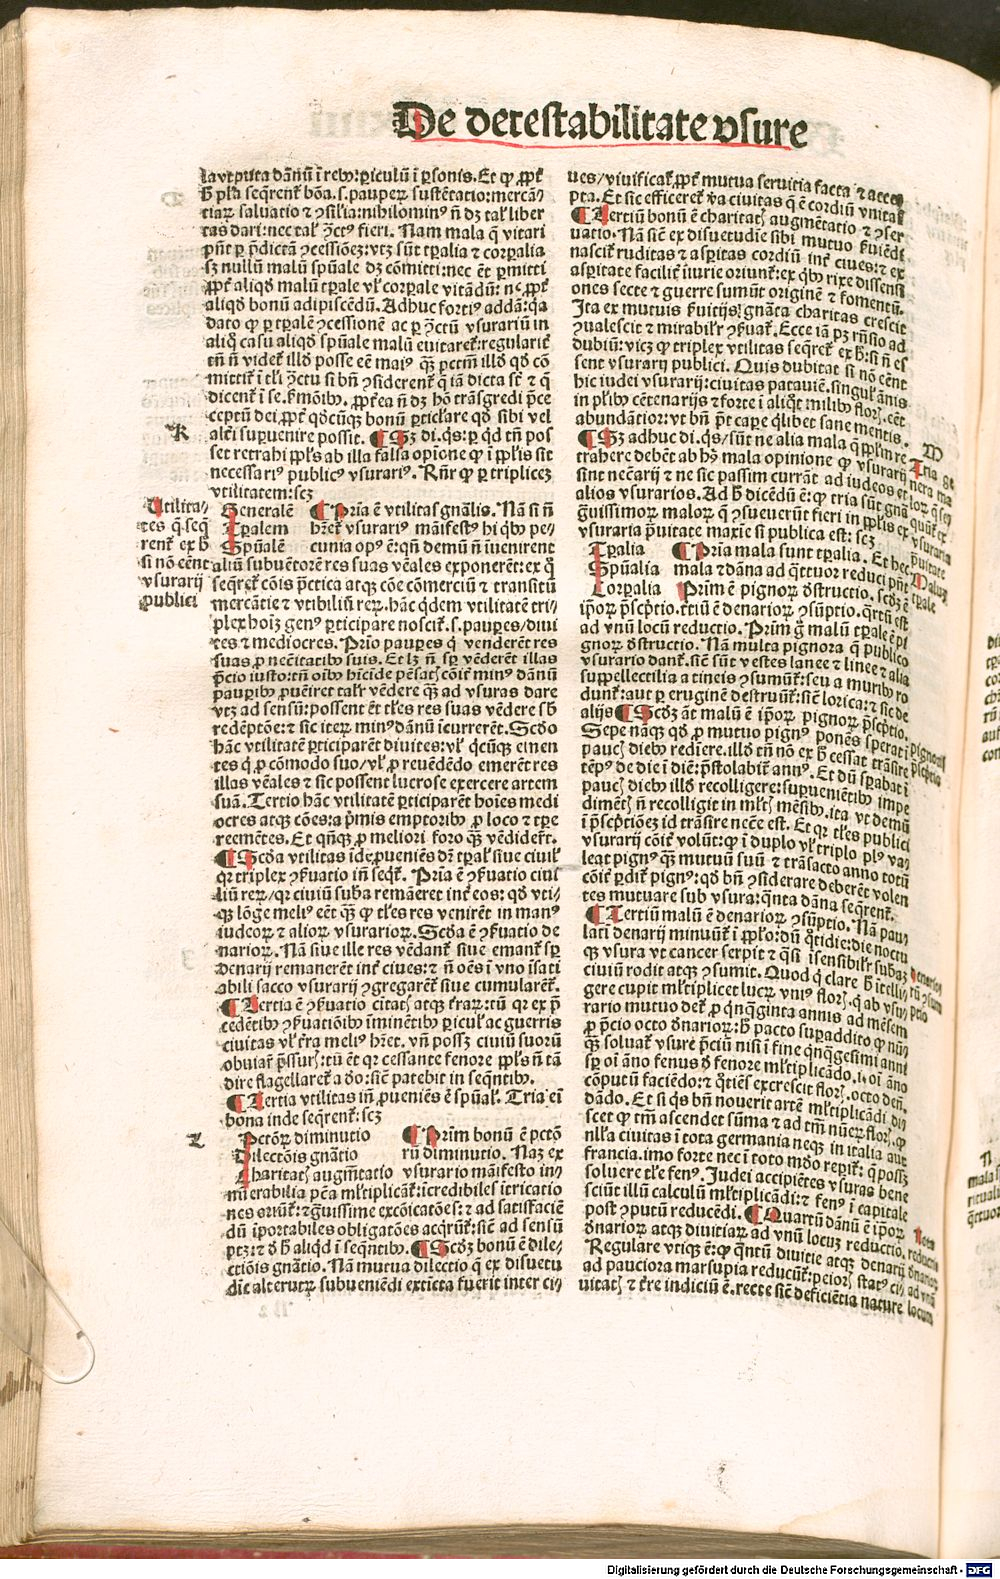 De detestabilitate vsure
tatē puta dānū ī rebꝫ: ꝑiculū ī ꝑsonis. Et ꝙ ꝓpt̄
h̄ pl̄a seq̄rent̄ bōa. s. pauperꝝ sustētatio: mercan-
tiaꝝ saluatio ⁊ ꝯsilia: nihilominꝰ n̄ dꝫ tal̓ liber
tas dari: nec tal̓ ꝯctꝰ fieri. Nam mala q̄ vitari
pn̄t ꝑ p̄dictā ꝯcessiōeꝫ: vtꝫ sūt tꝑalia ⁊ corꝑalia
sꝫ nullū malū spūale dꝫ cōmitti: nec ēt ꝑmitti
ꝓpt̄ aliqđ malū tꝑale vl̓ corꝑale vitādū: nec ꝓpt̄
aliqđ bonū adipiscēdū. Adhuc fortiꝰ addā: q̄a
dato ꝙ ꝑ tꝑalē ꝯcessionē ac ꝑ ꝯctū vsurariū in
aliq̊ casu aliqđ spūale malū euitaret̄: regularit̄
tn̄ n̄ videt̄ illđ posse eē maiꝰ q̄ꝫ pctm̄ illđ qđ cō
mittit̄ ī tl̓i ꝯctu si bn̄ ꝯsiderent̄ q̄ iā dicta st̄ ⁊ q̄
dicent̄ ī se. ẜmōibꝫ. ꝓpt̄ea n̄ dꝫ hō trāsgredi p̄ce
ceptū dei ꝓpt̄ qđcūqꝫ bonū ꝑticl̓are qđ sibi vel
alt̓i suꝑuenire possit. ¶ Sꝫ di. q̄s: ꝑ qđ tn̄ pos
K
set retrahi ppl̓s ab illa falsa opīone ꝙ ī ppl̓is sit
necessariꝰ publicꝰ vsurariꝰ. Rn̄r ꝙ ꝑ triplicem
vtilitatem: scꝫ
Vtilita-
tes q̄ seq̄
rent̄ ex h̄
si nō cēnt
vsurarij
publici
Generalē
Tꝑalem
Spūalē
¶ Pria ē vtilitas gn̄alis. Nā si n̄
hr̄et̄ vsurariꝰ māifestꝰ hi qibꝫ pe-
cunia opꝰ ē: qn̄ demū n̄ iuenirent
aliū subuētorē res suas vēales exponerēt: ex q̊
seq̄ret̄ cōis p̄ctica atqꝫ cōe cōmerciū ⁊ transitū
mercātie ⁊ vtibiliū reꝝ. hāc q̄dem vtilitatē tri-
plex hoiꝫ genꝰ ꝑticipare noscit̄. s. pauꝑes/ diui
tes ⁊ mediocres. Prīo pauꝑes q̄ venderēt res
suas ꝓ nec̄itatibꝫ suis. Et lꝫ n̄ sꝑ vēderēt illas
p̄cio iusto: tn̄ oībꝫ hīcide pēsatꝭ cōit̄ minꝰ dānū
pauꝑibꝫ ꝓueīret tal̓r vēdere q̄ꝫ ad vsuras dare
vtꝫ ad sensū: possent ēt tl̓es res suas vēdere sb̄
redēptōe: ⁊ sic iterꝝ minꝰ dānū īcurrerēt. Scđo
hāc vtilitatē ꝑticiparēt diuites: vl̓ q̄cūqꝫ emen
tes q̄ ꝓ cōmodo suo/ vl̓ ꝓ reuēdēdo emerēt res
illas vēales ⁊ sic possent lucrose exercere artem
suā. Tertio hāc vtilitatē ꝑticiparēt hoīes medi
ocres atqꝫ cōes: a p̄mis emptoribꝫ ꝓ loco ⁊ tꝑe
reemētes. Et qn̄qꝫ ꝓ meliori foro q̄ꝫ vēdider̄t.
¶ Scđa vtilitas īde ꝓueniēs dr̄ tꝑal̓ siue ciuil̓
qr triplex ꝯẜuatio īn seq̄t̄. Pria ē ꝯẜuatio ciui
liū reꝝ/ qr ciuiū suba remāeret int̄ eos: qđ vti-
qꝫ lōge meliꝰ eēt q̄ꝫ ꝙ tl̓es res venirēt in manꝰ
iudeoꝝ ⁊ alioꝝ vsurarioꝝ. Scđa ē ꝯẜuatio de
narioꝝ. Nā siue ille res vēdant̄ siue emant̄ sꝑ
denarij remanerēt int̄ ciues: ⁊ n̄ oēs ī vno īsati
abili sacco vsurarij ꝯgregarēt̄ siue cumularēt̄.
¶ Tertia ē ꝯẜuatio ciƚatꝭ atqꝫ t̄raꝝ: tū qr ex p̄
cedētibꝫ ꝯẜuatiōibꝫ īminētibꝫ ꝑicul̓ ac guerris
ciuitas vl̓ t̄ra meliꝰ hr̄et. vn̄ possꝫ ciuiū suorū
obuiar̄ p̄ssurꝭ: tū ēt qr cessante fenore ppl̓s n̄ tā
dire flagellaret̄ a đo: sic̄ patebit in seq̄ntibꝫ.
¶ Tertia vtilitas in̄ ꝓueniēs ē spūal̓. Tria ei̅
bona inde seq̄rent̄: scꝫ
L
Pctōꝝ diminutio
Dilectōis gn̄atio
Charitatꝭ augm̄tatio
¶ Prim̄ bonū ē pctō
rū diminutio. Naꝫ ex
vsurario māifesto in-
nūerabilia pc̄a ml̓tiplicāt̄: īcredibiles ītricatio
nes oriūt̄: ⁊ guissime excōicatōes: ⁊ ad satisfaciē
dū īportabiles obligatōes acq̄rūt̄: sic̄ ad sensū
ptꝫ: ⁊ đ h̄ aliqđ ī seq̄ntibꝫ. ¶ Scđꝫ bonū ē dile-
ctiōis gn̄atio. Nā mutua dilectio q̄ ex disuetu
dīe alterutꝝ subueniēdi extīcta fuerit inter ci-
ues/ viuificat̄, ꝓpt̄ mutua seruitia facta ⁊ acce
pta. Et sic efficeret̄ v̓a ciuitas q̄ ē cordiū vnitas
¶ Tertiū bonū ē charitatꝭ augmētatio ⁊ ꝯser
uatio. Nā sic̄ ex disuetudīe sibi mutuo ẜuiēdi
nascit̄ ruditas ⁊ asꝑitas cordiū int̄ ciues: ⁊ ex
asꝑitate facilit̄ iīurie oriunt̄: ex qibꝫ rixe dissensi
ones secte ⁊ guerre sumūt originē ⁊ fomentū.
Ita ex mutuis ẜuitijs gn̄ata charitas crescit
ꝯualescit ⁊ mirabil̓r ꝯẜuat̄. Ecce iā pꝫ rn̄sio ad
dubiū: vicꝫ ꝙ triplex vtilitas seq̄ret̄ ex h̄: si n̄ es
sent vsurarij publici. Quis dubitat si nō cēnt
hic iudei vsurarij: ciuitas patauiē. singul̓ ānis
in pl̓ibꝫ cētenarijs ⁊ forte ī aliqt̄ milibꝫ flor̄. eēt
abundātior: vt bn̄ pt̄ caꝑe q̄libet sane mentis.
M
¶ Sꝫ adhuc di. q̄s/ sūt ne alia mala q̄ ppl̓m re
trahere debēt ab hꝫ mala opinione ꝙ vsurarij
sint necārij ⁊ ne sic passim currāt ad iudeos et
alios vsurarios. Ad h̄ dicēdū ē: ꝙ tria sūt gn̄a
guissimoꝝ maloꝝ q̄ ꝯsueuerūt fieri in ppl̓is ex
vsuraria p̄uitate maxīe si publica est: scꝫ
Tria ge
nera ma
loꝝ q̄ seq̄
vsuraria
Tꝑalia
Spūalia
Corꝑalia
¶ Pria mala sunt tꝑalia. Et hec
mala ⁊ dāna ad q̄ttuor reduci pn̄t
Prim̄ ē pignoꝝ đstructio. scđꝫ ē
Maluꝫ
tꝑale
ip̄oꝝ p̄scp̄tio. t̄tiū ē denarioꝝ ꝯsūptio. q̄rtū est
ad vnū locū reductio. Prim̄ g̊ malū tꝑale ē pi
gnoꝝ đstructio. Nā multa pignora q̄ publico
vsurario dant̄. sic̄ sūt vestes lanee ⁊ linee ⁊ alia
suppellectilia a tineis ꝯsumūt̄: seu a muribꝫ ro
dunt̄: aut ꝑ eruginē destruūt̄: sic̄ lorica: ⁊ sic de
alijs ¶ Scđꝫ āt malū ē ip̄oꝝ pignoꝝ p̄scp̄tio.
Sepe nāqꝫ qđ ꝓ mutuo pignꝰ ponēs sperat ī
paucꝭ diebꝫ rediere. illđ tn̄ nō ex h̄ cessat trāsire
tēpꝰ de die ī diē: p̄stolabit̄ annꝰ. Et dū sꝑabat ī
pignorū
p̄scriptio
paucꝭ diebꝫ illđ recolligere: suꝑuenietibꝫ impe
dimētꝭ n̄ recolligit in ml̓tꝭ mēsibꝫ. ita vt demū
ī p̄scp̄tiōeꝫ id trāsire necē est. Et qr tl̓es publici
vsurarij cōit̄ volūt: ꝙ ī duplo vl̓ triplo plꝰ va
leat pignꝰ q̄ꝫ mutuū suū ⁊ trāsacto anno totū
cōit̄ ꝑdit̄ pignꝰ: qđ bn̄ ꝯsiderare deberēt volen
tes mutuare sub vsura: q̄nta dāna seq̄rent̄.
¶ Tertiū malū ē denarioꝝ ꝯsūptio. Nā pau
lati denarij minuūt̄ ī ppl̓o: dū q̊tidie: die noctu
qꝫ vsura vt cancer serpit ⁊ q̄si īsensibil̓r subaꝫ
ciuiū rodit atqꝫ ꝯsumit. Quod q̄ clare h̄ ītelli-
denarioꝝ
gere cupit ml̓tiplicet lucrꝫ vniꝰ flor̄. q̄ ab vsu
rario mutuo det̄ ꝓ qn̄q̄ginta annis ad mēsem
ꝑ p̄cio octo đnarioꝝ: h̄ pacto suꝑaddito ꝙ nūꝰ
q̄ꝫ soluat̄ vsure p̄ciū nisi ī fine qn̄q̄gesimi anni
sꝑ oī āno fenus đ fenore ml̓tiplicādo. i. oī āno
cōputū faciēdo: ⁊ q̊tiēs excrescit flor̄. octo deñ.
dādo. Et si q̄s bn̄ nouerit artē ml̓tiplicādi di
scet ꝙ tm̄ ascendet sūma ⁊ ad tm̄ nūeꝝ flor̄. ꝙ
nl̓la ciuitas ī tota germania neqꝫ in italia aut
francia. imo forte nec ī toto mđo reꝑit̄: q̄ possꝫ
soluere tl̓e fenꝰ. Judei accipiētes vsuras bene
sciūt illū calculū ml̓tiplicādi: ⁊ fenꝰ ī capitale
post ꝯputū reducēdi. ¶ Quartū dānū ē ip̄oꝝ
đnarioꝝ atqꝫ diuitiaꝝ ad vnū locuꝫ reductio.
Regulare vtiqꝫ ē: ꝙ q̄ntū diuitie atqꝫ denarij
ad pauciora marsupia reducūt̄: peiorꝭ statꝰ ci
uitatꝭ ⁊ t̄re indiciū ē. recte sic̄ deficiētia nature
Nota
reductio
đnarioꝝ
ad vnū
locum
Digitalisierung gefördert durch die Deutsche Forschungsgemeinschaft - DFG